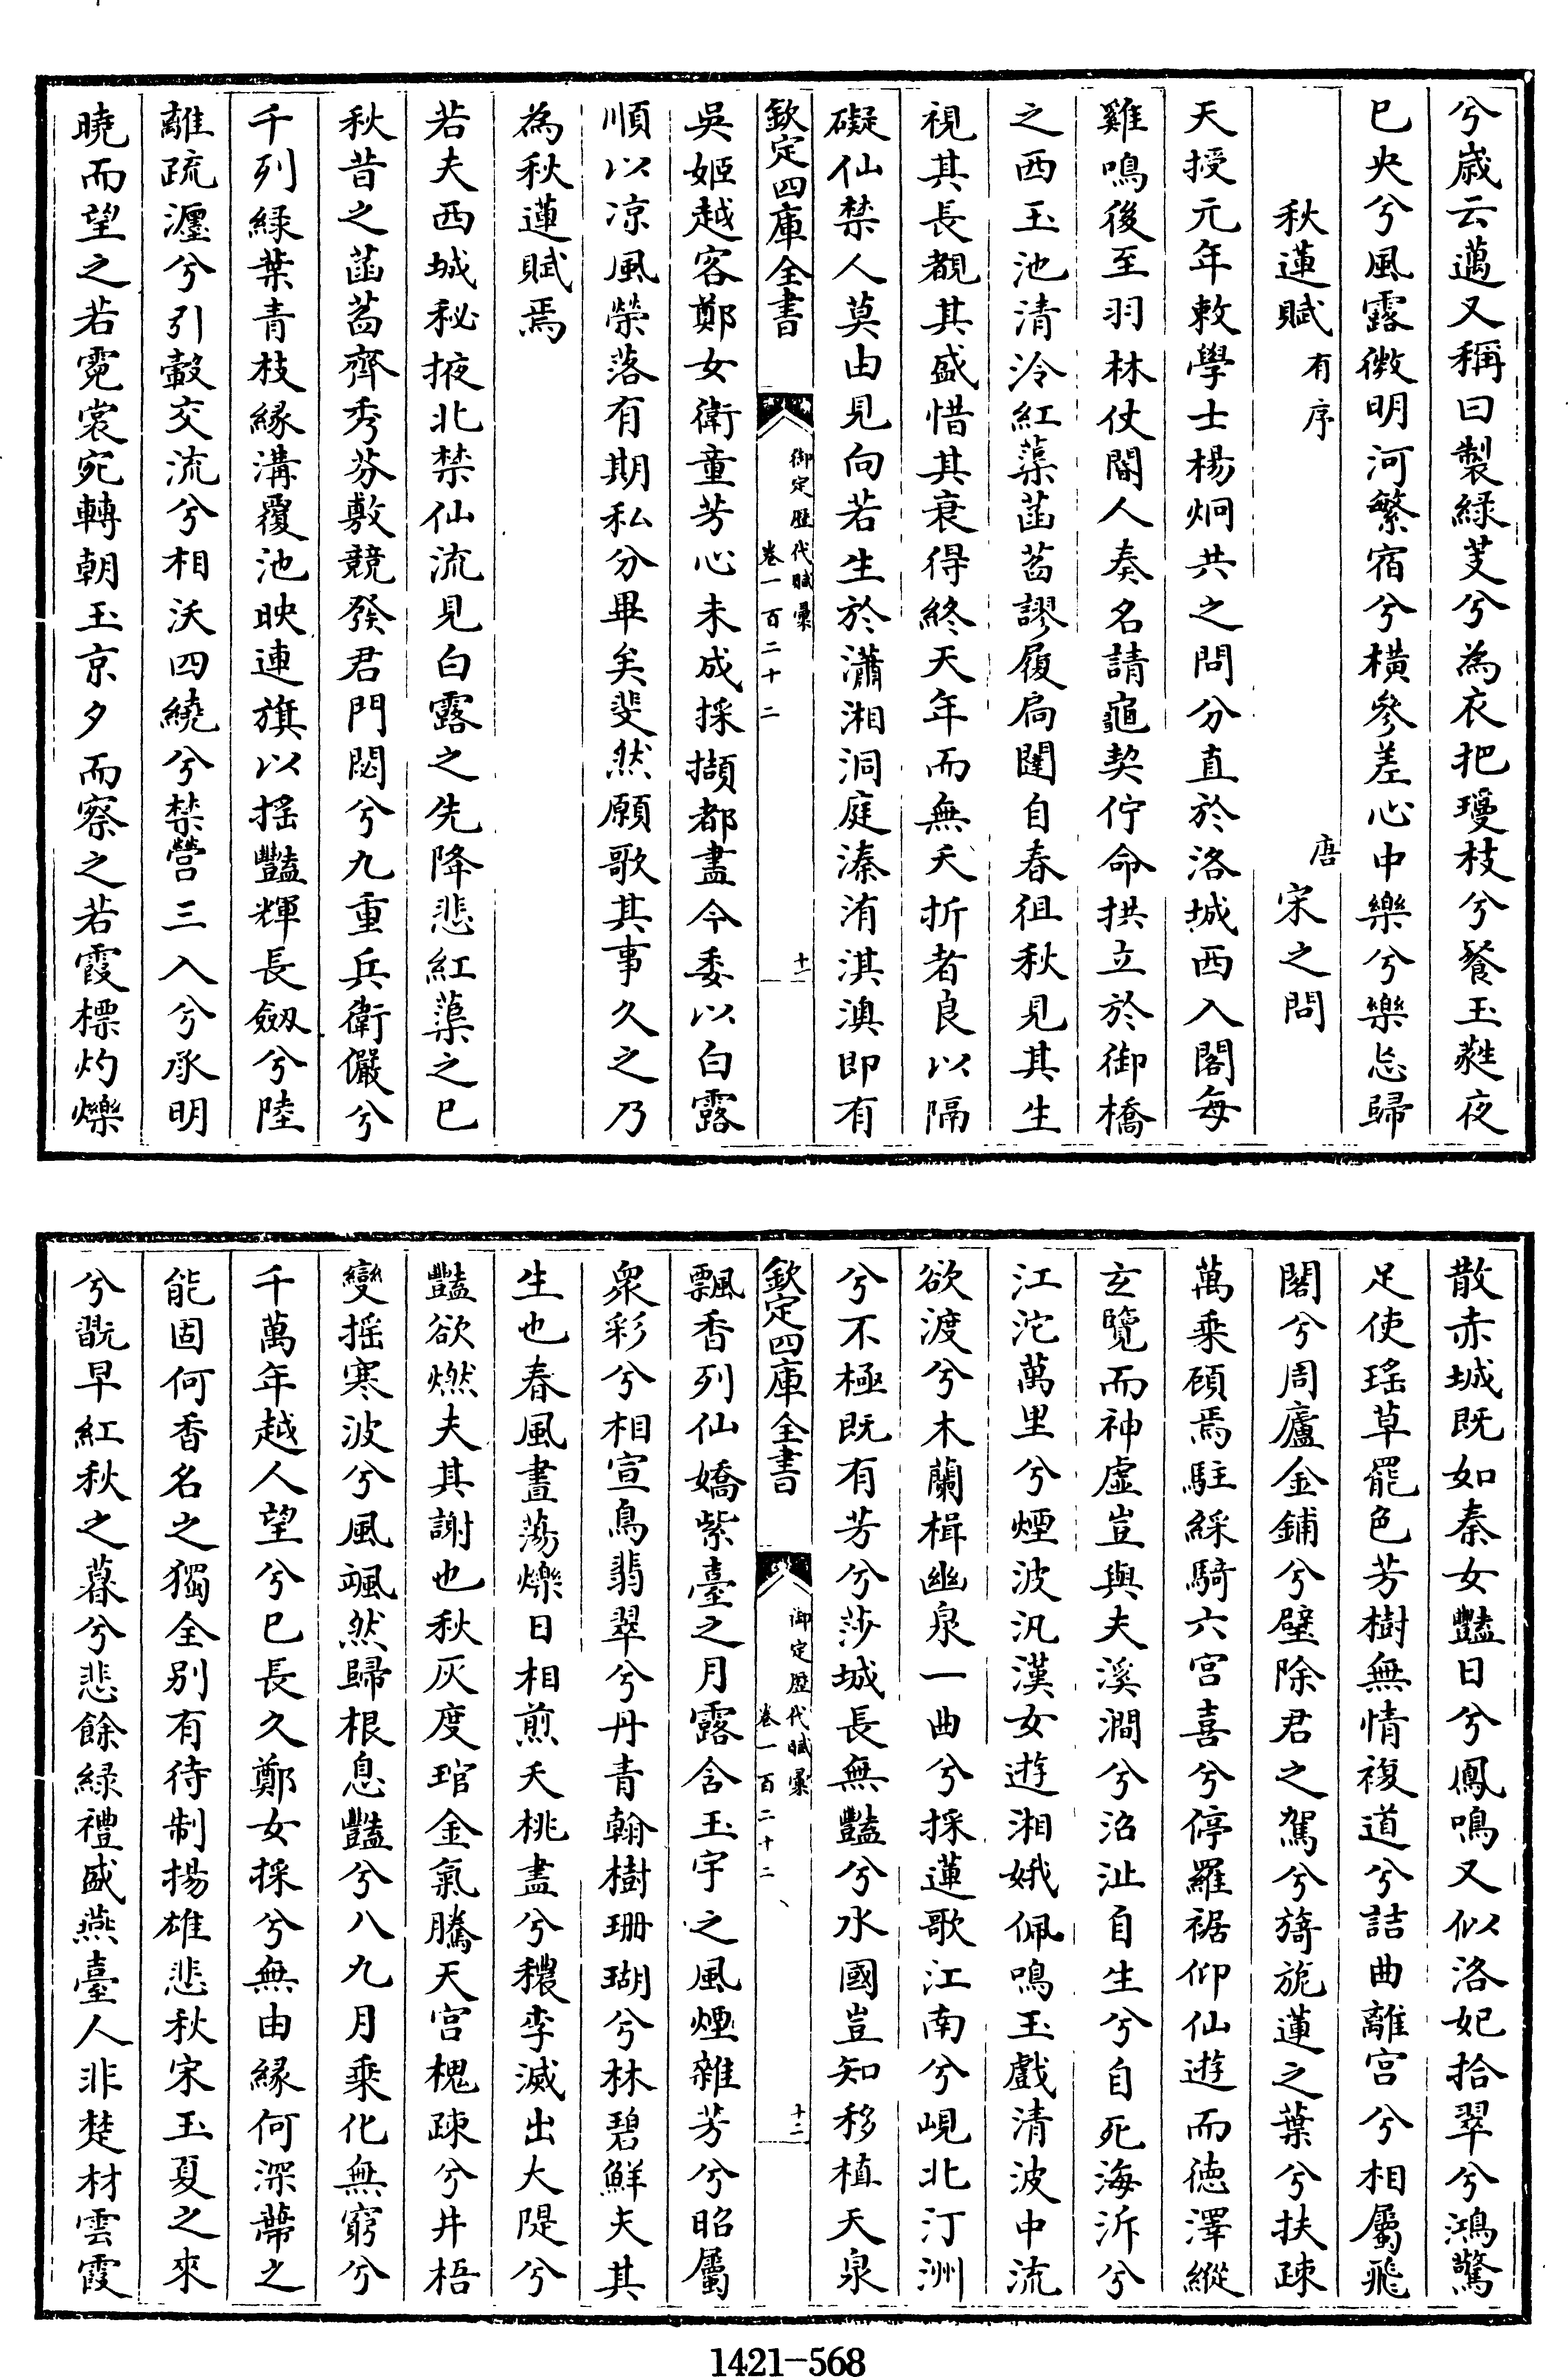 兮歳云邁又稱曰製緑芰兮為衣把瓊枝兮餐玉蕤夜
已央兮風露微明河繁宿兮橫參差心中樂兮樂忘歸
秋蓮賦有序 唐宋之問
天授元年敕學士楊炯共之問分直於洛城西入閣每
雞鳴後至羽林仗閽人奏名請龜契佇命拱立於御橋
之西玉池清泠紅蕖菡萏謬履扃闥自春徂秋見其生
視其長覩其盛惜其衰得終天年而無夭折者良以隔
礙仙禁人莫由見向若生於瀟湘洞庭溱洧淇澳即有
欽定四庫全書 御定歴代賦彙 卷一百二十二 十一
吳姬越客鄭女衛童芳心未成採擷都盡今委以白露
順以凉風榮落有期私分畢矣斐然願歌其事久之乃
為秋蓮賦焉
若夫西城秘掖北禁仙流見白露之先降悲紅蕖之已
秋昔之菡萏齊秀芬敷競發君門閟兮九重兵衛儼兮
千列緑葉青枝縁溝覆池映連旗以搖豔輝長劔兮陸
離疏瀍兮引轂交流兮相沃四繞兮禁營三入兮承明
曉而望之若霓裳宛轉朝玉京夕而察之若霞標灼爍
散赤城既如秦女豔日兮鳳鳴又似洛妃拾翠兮鴻驚
足使瑤草罷色芳樹無情複道兮詰曲離宮兮相屬飛
閣兮周廬金鋪兮壁除君之駕兮旖旎蓮之葉兮扶疎
萬乗頋焉駐綵騎六宮喜兮停羅裾仰仙遊而徳澤縱
玄覽而神虛豈與夫溪澗兮沼沚自生兮自死海沂兮
江沱萬里兮煙波汎漢女遊湘娥佩鳴玉戲清波中流
欲渡兮木蘭楫幽泉一曲兮採蓮歌江南兮峴北汀洲
兮不極既有芳兮莎城長無豔兮水國豈知移植天泉
欽定四庫全書 御定歴代賦彙 卷一百二十二 十二
飄香列仙嬌紫臺之月露含玉宇之風煙雜芳兮昭屬
衆彩兮相宣鳥翡翠兮丹青翰樹珊瑚兮林碧鮮夫其
生也春風晝蕩爍日相煎夭桃盡兮穠李滅出大隄兮
豔欲燃夫其謝也秋灰度琯金氣騰天宮槐疎兮井梧
變搖寒波兮風颯然歸根息豔兮八九月乗化無窮兮
千萬年越人望兮已長久鄭女採兮無由縁何深蔕之
能固何香名之獨全别有待制揚雄悲秋宋玉夏之來
兮翫早紅秋之暮兮悲餘緑禮盛燕臺人非楚材雲霞
1421-568